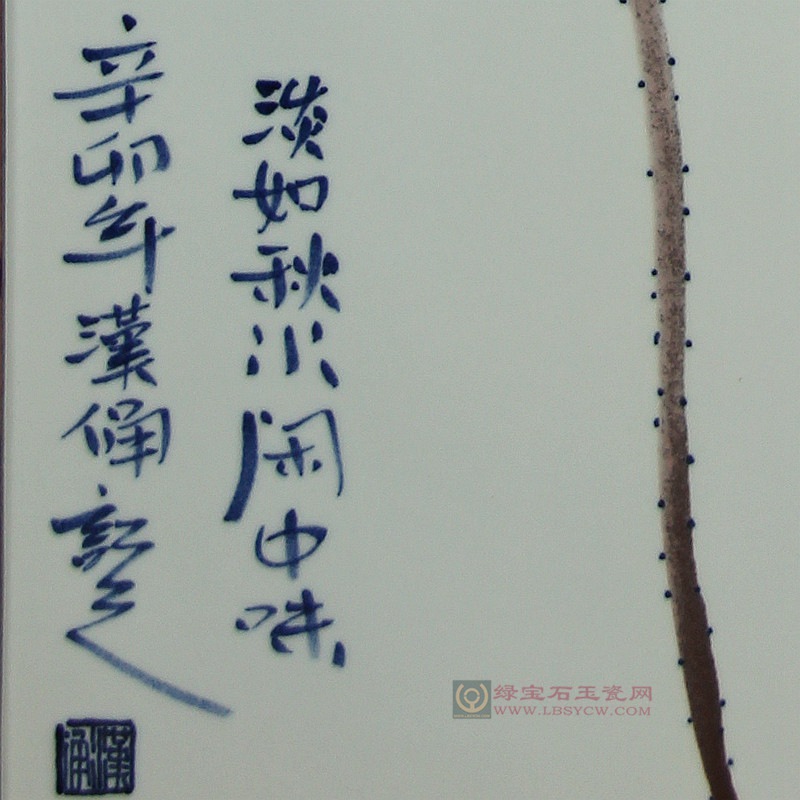 淡如秋水闲中味
辛卯年漢俑記之
漢俑
绿宝石玉瓷网
WWW.LBSYCW.COM